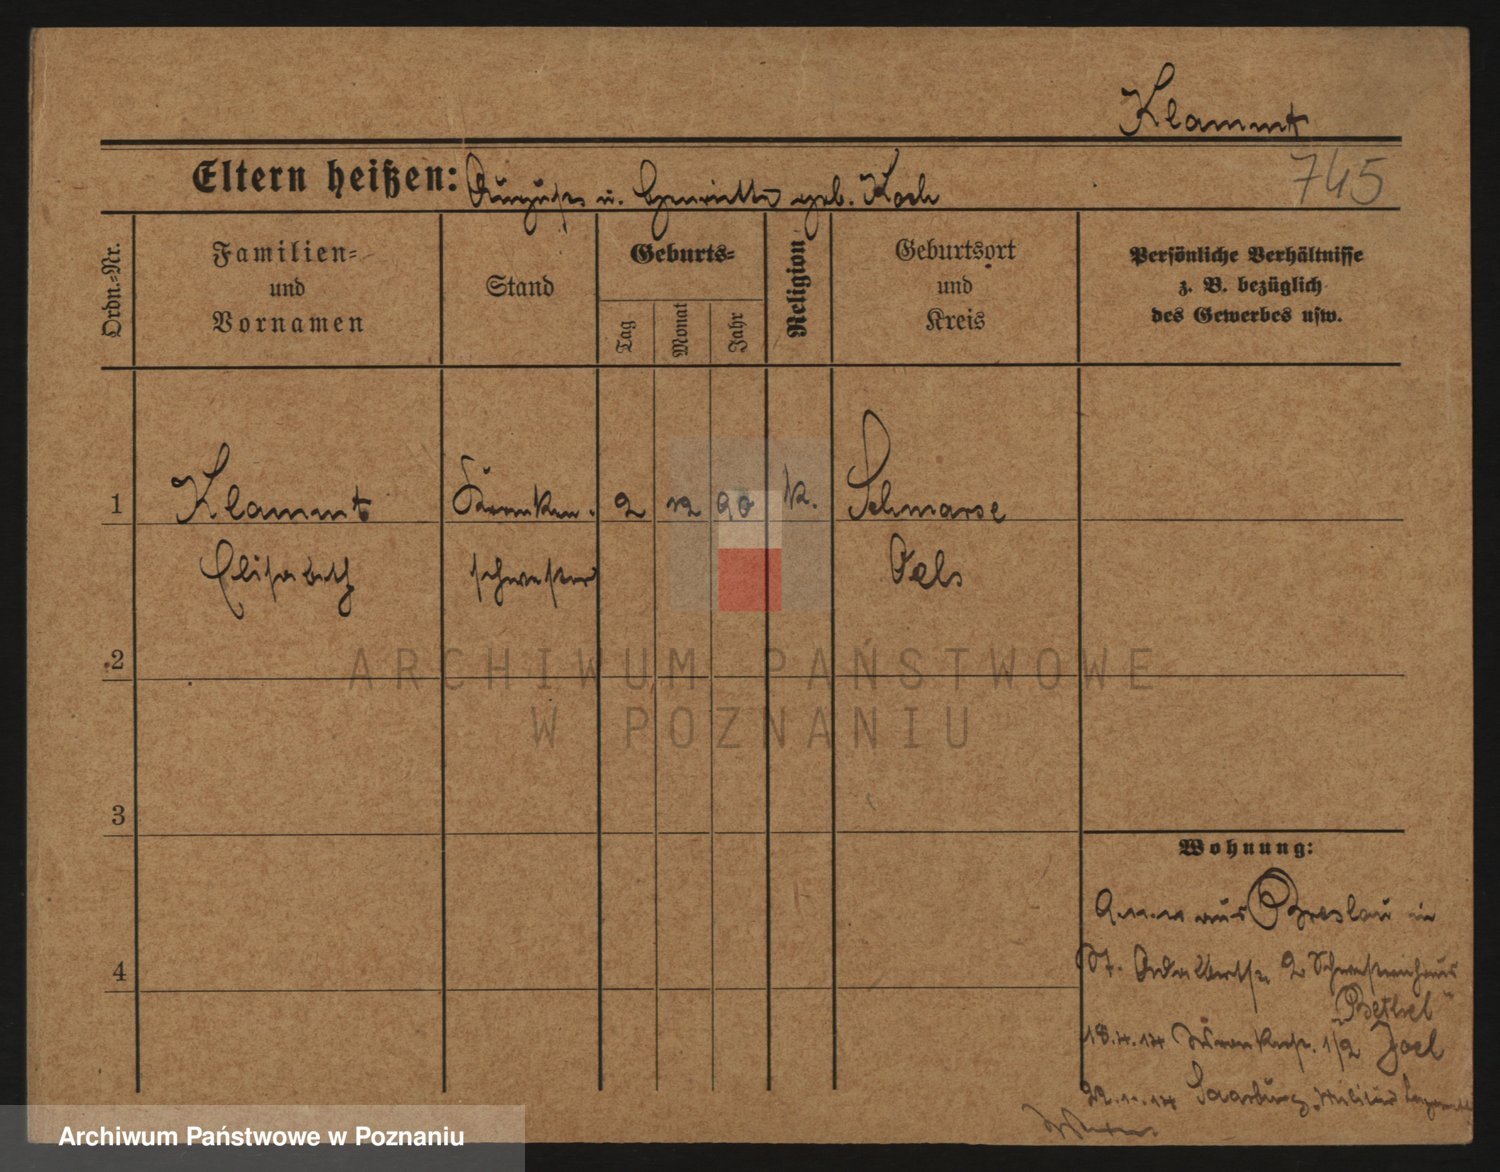 Klammt
Eltern heißen: August u. Henriette geb. Koch
745
Ordn.=Nr.
Familien=
und
Vornamen
Stand
Geburts=
Tag
Monat
Jahr
Religion
Geburtsort
und
Kreis
Persönliche Verhältnisse
z. B. bezüglich
des Gewerbes usw.
1
Klammt
Kranken-
2 12 90
k.
Schmarse
Elisabeth
schwester
Oels
2
3
4
Wohnung:
aus Breslau in
St. Adalbertstr. 2 Schwesternhaus
"Bethel"
18.4.14 1/2 Joel
22.11.14 Saarburg, Militär
ARCHIWUM PAŃSTWOWE
W POZNANIU
Archiwum Państwowe w Poznaniu